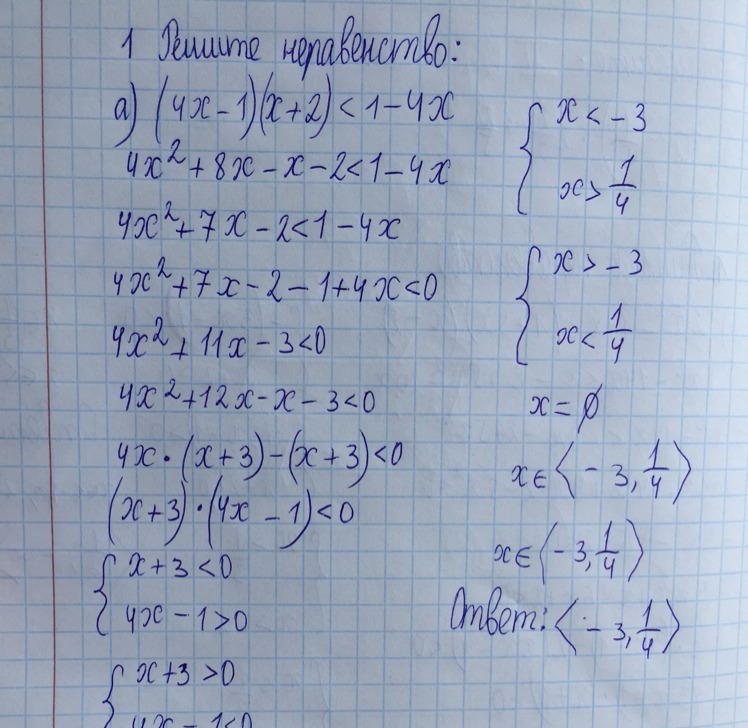 1 Решите неравенство:
а) (4x-1)(x+2)<1-4x
4x²+8x-x-2<1-4x
4x²+7x-2<1-4x
4x²+7x-2-1+4x<0
4x²+11x-3<0
4x²+12x-x-3<0
4x·(x+3)-(x+3)<0
(x+3)·(4x-1)<0
{ x+3<0
4x-1>0
{ x+3>0
4x-1<0
{ x<-3
x>1/4
{ x>-3
x<1/4
x=∅
x∈⟨-3,1/4⟩
x∈⟨-3,1/4⟩
Ответ: ⟨-3,1/4⟩